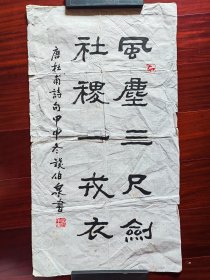 風塵三尺劍
社稷一戎衣
唐杜甫詩句甲申冬張伯泉書